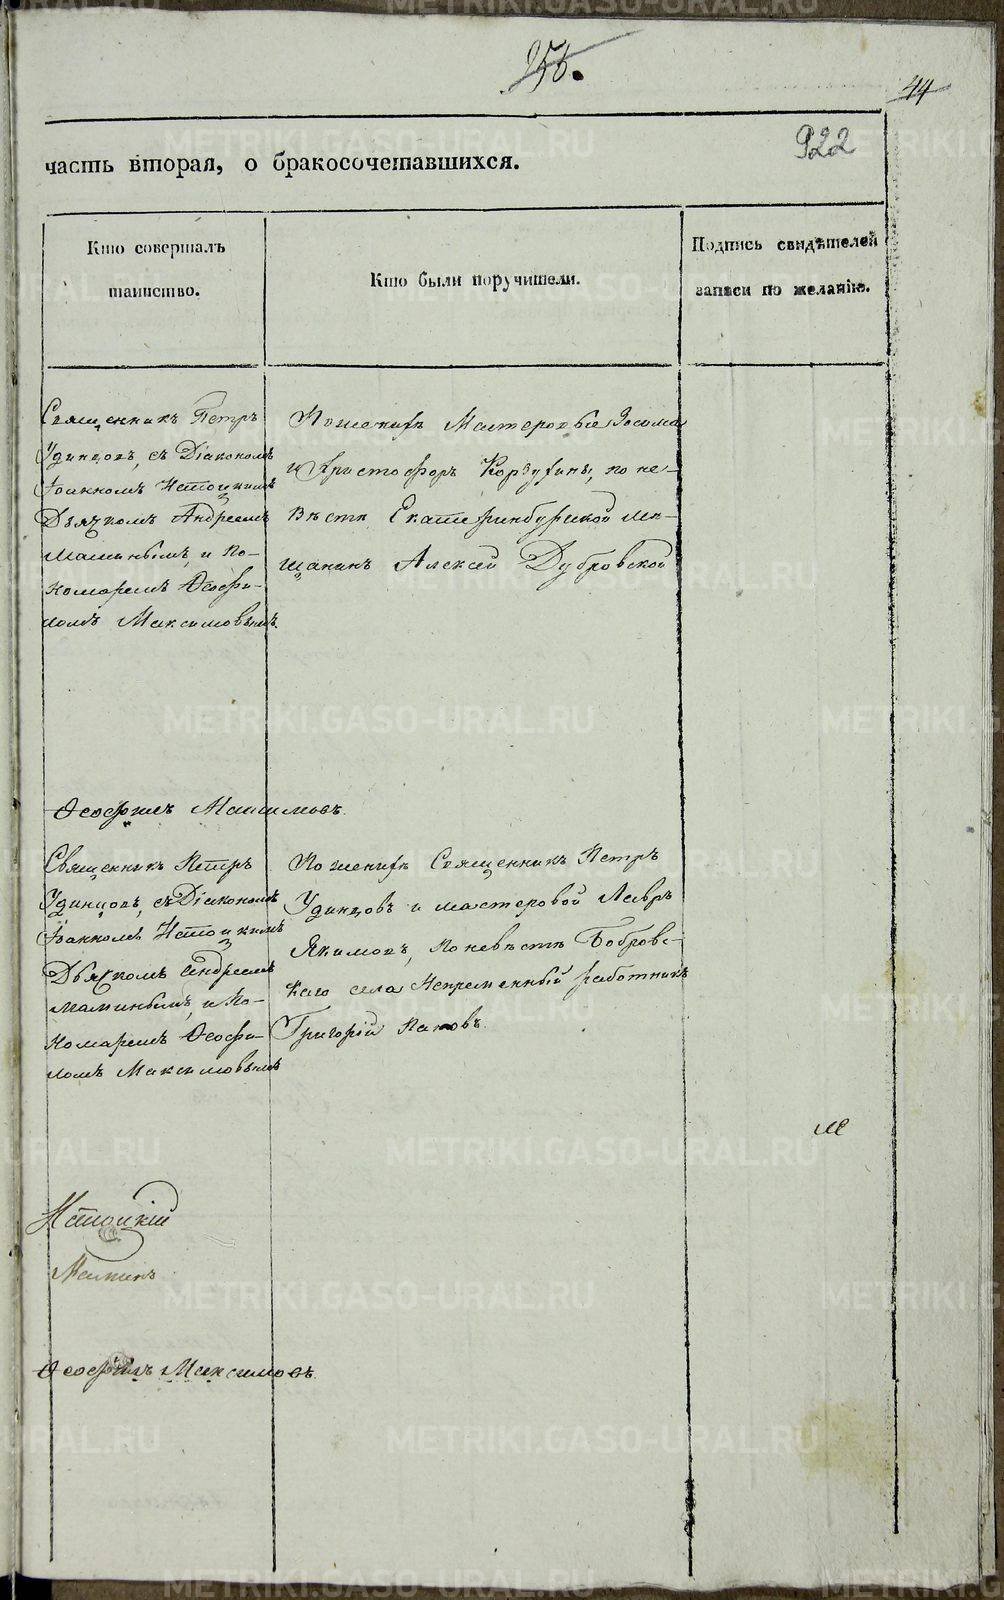 256.
44
922
часть вторая, о бракосочетавшихся.
Кто совершалъ
таинство.
Кто были поручители.
Подпись свидѣтелей
записи по желанію.
Священникъ Петръ
Удинцовъ, съ Діакономъ
Іоанномъ
Дьячкомъ Андреемъ
Маминымъ, и По-
номаремъ Ѳеофи-
ломъ Максимовымъ.
По женихѣ Мастеровые Зосима
и Христофоръ Корзухины, по не-
вѣстѣ Екатеринбургской мѣ-
щанинъ Алексѣй Дубровской
Ѳеофилъ Максимовъ.
Священникъ Петръ
Удинцовъ, съ Діакономъ
Іоанномъ
Дьячкомъ Андреемъ
Маминымъ, и По-
номаремъ Ѳеофи-
ломъ Максимовымъ
По женихѣ Священникъ Петръ
Удинцовъ и мастеровой Лавръ
Якимовъ, по невѣстѣ Бобровс-
каго села Непременный работникъ
Григорій
Маминъ
Ѳеофилъ Максимовъ.
METRIKI.GASO-URAL.RU